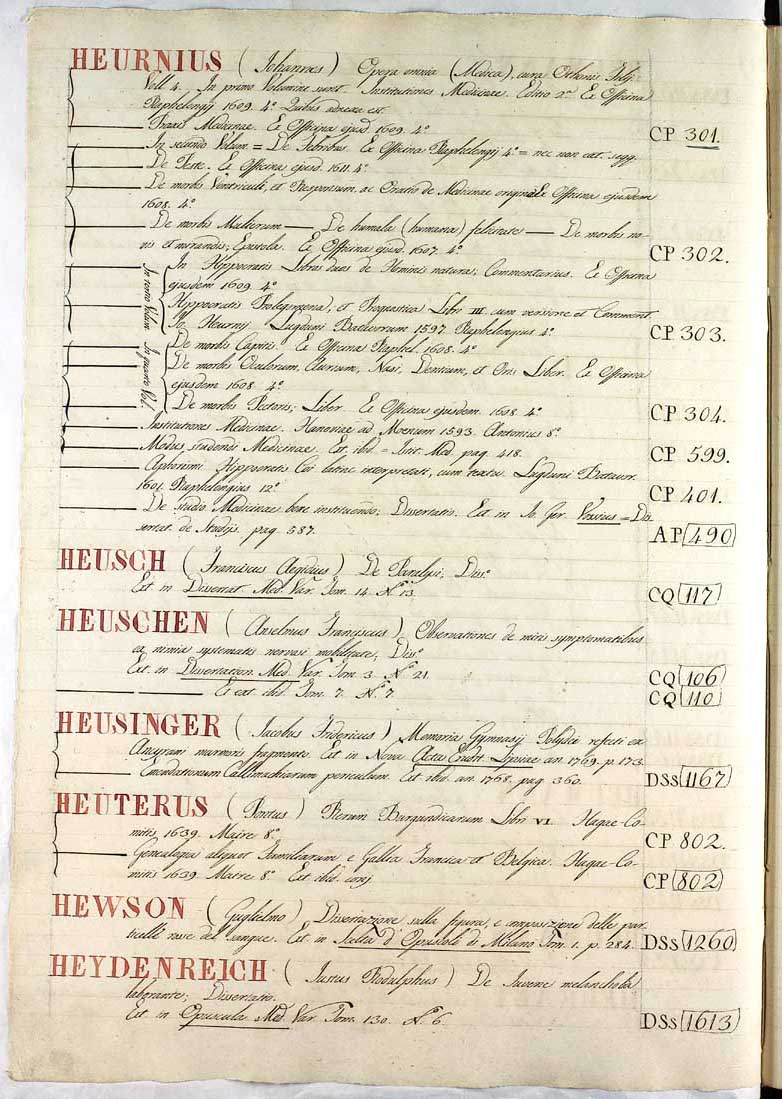 HEURNIUS ( Johannes ) Opera omnia (Medica), cura Othonis Filij
Voll 4. In primo Volumine sunt Institutiones Medicinae. Editio 2ª Ex Officina
Raphelengij 1609. 4º Quibus adnexae est
Praxis Medicinae. Ex Officina ejusd. 1609. 4º CP 301.
In secundo Volum. = De Febribus. Ex Officina Raphelengij 4º = nec non cat. segg.
De Peste. Ex Officina ejusd. 1611. 4º
De morbis Ventriculi, et Responsum, ac Oratio de Medicinae origine Ex Officina ejusdem
1608. 4º
De morbis Mulierum — De humala (humana) felicitate — De morbis no-
vis et mirandis; Epistola. Ex Officina ejusd. 1607. 4º CP 302.
In tertio Volum.
In Hippocratis Libros duos de Hominis natura; Commentarius. Ex Officina
ejusdem 1609. 4º
Hippocratis Prolegomena, et Prognostica Libri III. cum versione et Comment.
Jo. Heurnij. Lugduni Batavorum 1597. Raphelengius 4º CP 303.
In quarto Vol.
De morbis Capitis. Ex Officina Raphel. 1608. 4º
De morbis Oculorum, Aurium, Nasi, Dentium, et Oris; Liber. Ex Officina
ejusdem 1608. 4º
De morbis Pectoris; Liber. Ex Officina ejusdem. 1608. 4º CP 304.
Institutiones Medicinae. Hanoviae ad Moenum 1593. Antonius 8º
Modus studendi Medicinae. Est. ibid. = Int. Med. pag. 418. CP 599.
Aphorismi Hippocratis Coi latine interpretati, cum textu. Lugduni Batavor.
1601. Raphelengius 12º CP 401.
De studio Medicinae bene instituendo; Dissertatio. Ext. in Jo. Ger. Vossius = Dis-
sertat. de Studijs. pag. 587. AP 490
HEUSCH ( Franciscus Aegidius ) De Paralysi; Diss.º
Ext. in Dissertat. Med. Var. Tom. 14. Nº 13. CQ 117
HEUSCHEN ( Anselmus Franciscus ) Observationes de miris symptomatibus
ac nimia systematis nervosi mobilitate; Diss.º
Ext. in Dissertation. Med. Var. Tom. 3. Nº 21. CQ 106
Et ext. ibid. Tom. 7. Nº 7 CQ 110
HEUSINGER ( Jacobus Fridericus ) Memoria Gymnasij refecti ex
marmoris fragmento. Ext. in Nova Acta Erudit. Lipsiae an. 1769. p. 173.
Emendationum Callimachiarum periculum. Ext. ibid. an. 1768, pag. 360. DSs 1167
HEUTERUS ( Pontus ) Rerum Burgundicarum Libri VI. Hagae-Co-
mitis, 1639. Maire 8º CP 802.
Genealogia aliquot Familiarum e Gallia Francica et Belgica. Hagae-Co-
mitis 1639. Maire 8º Ext. ibid. conj. CP 802
HEWSON ( Guglielmo ) Dissertazione sulla figura, e composizione delle par-
ticelle rosse del sangue. Est. in Scelta d'Opuscoli di Milano Tom. 1. p. 284. DSs 1260
HEYDENREICH ( Justus Rodulphus ) De Juvene melancholia
laborante; Dissertatio.
Ext. in Opuscula Med. Var. Tom. 130. Nº 6. DSs 1613